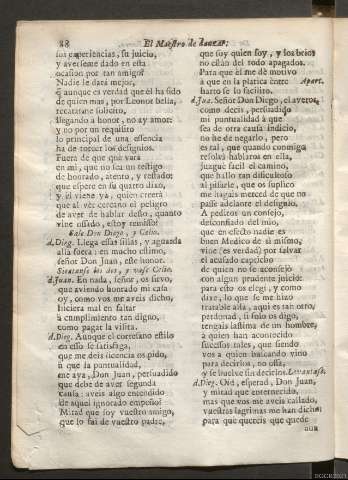 88 El Maestro de danzar:
sus experiencias, su juicio,
y averseme dado en esta
ocasion por tan amigo?
Nadie le dará mejor,
q̃ aunque es verdad que él ha sido
de quien mas, por Leonor bella,
recatarme solicito,
llegando a honor, no ay amor:
y no por un requisito
lo principal de una essencia
ha de torcer los designios.
Fuera de que que vara
en mi, que no sea un testigo
de honrado, atento, y restado:
que espere en su quatro dixo,
y èl viene ya, quien creerà
que al ver cercano el peligro
de aver de hablar desto, quanto
vine osado, estoy remisso?
Sale Don Diego, y Celio.
d.Dieg. Llega essas sillas, y aguarda
allá fuera: en mucho estimo,
señor Don Juan, este honor.
Sientanse los dos, y vase Celio.
d.Juan. En nada, señor, os sirvo,
que aviendo honrado mi casa
oy, como vos me aveis dicho,
hiciera mal en faltar
à cumplimiento tan digno,
como pagar la visita.
d.Dieg. Aunque el cortesano estilo
en esso se satisfaga,
que me deis licencia os pido,
à que la puntualidad,
me aya, Don Juan, persuadido
que debe de aver segunda
causa: aveis algo entendido
de aquel ignorado empeño?
Mirad que soy vuestro amigo,
que lo fui de vuestro padre,
que soy quien soy, y los brios
no estàn del todo apagados.
Para que él me dè motivo
à que en la platica entre Apart.
harto se lo facilito.
d.Jua. Señor Don Diego, el averos,
como decis, persuadido
mi puntualidad à que
sea de otra causa indicio,
no he de negarlo, pero
es tal, que quando conmigo
resolvi hablaros en ella,
juzguè facil el camino,
que hallo tan dificultoso
al pisarle, que os suplico
me hagais merced de que no
passe adelante el designio.
A pediros un consejo,
desconfiado del mio,
que en efecto nadie es
buen Medico de sì mismo,
vine (es verdad) por salvar
el acusado capricho
de quien no se aconsejò
con algun prudente juicio:
para esto os elegì, y como
dixe, lo que se me hizo
tratable allà, aqui es tan otro,
perdonad, si solo os digo,
tengais lastima de un hombre,
à quien han acontecido
sucessos tales, que siendo
vos a quien buscando vino
para decirlos, no ossa,
y se buelve sin decirlos. Levantase.
d.Dieg. Oid, esperad, Don Juan,
y mirad que enternecido,
mas que vos me aveis callado,
vuestras lagrimas me han dicho:
para que quereis que quede
aun